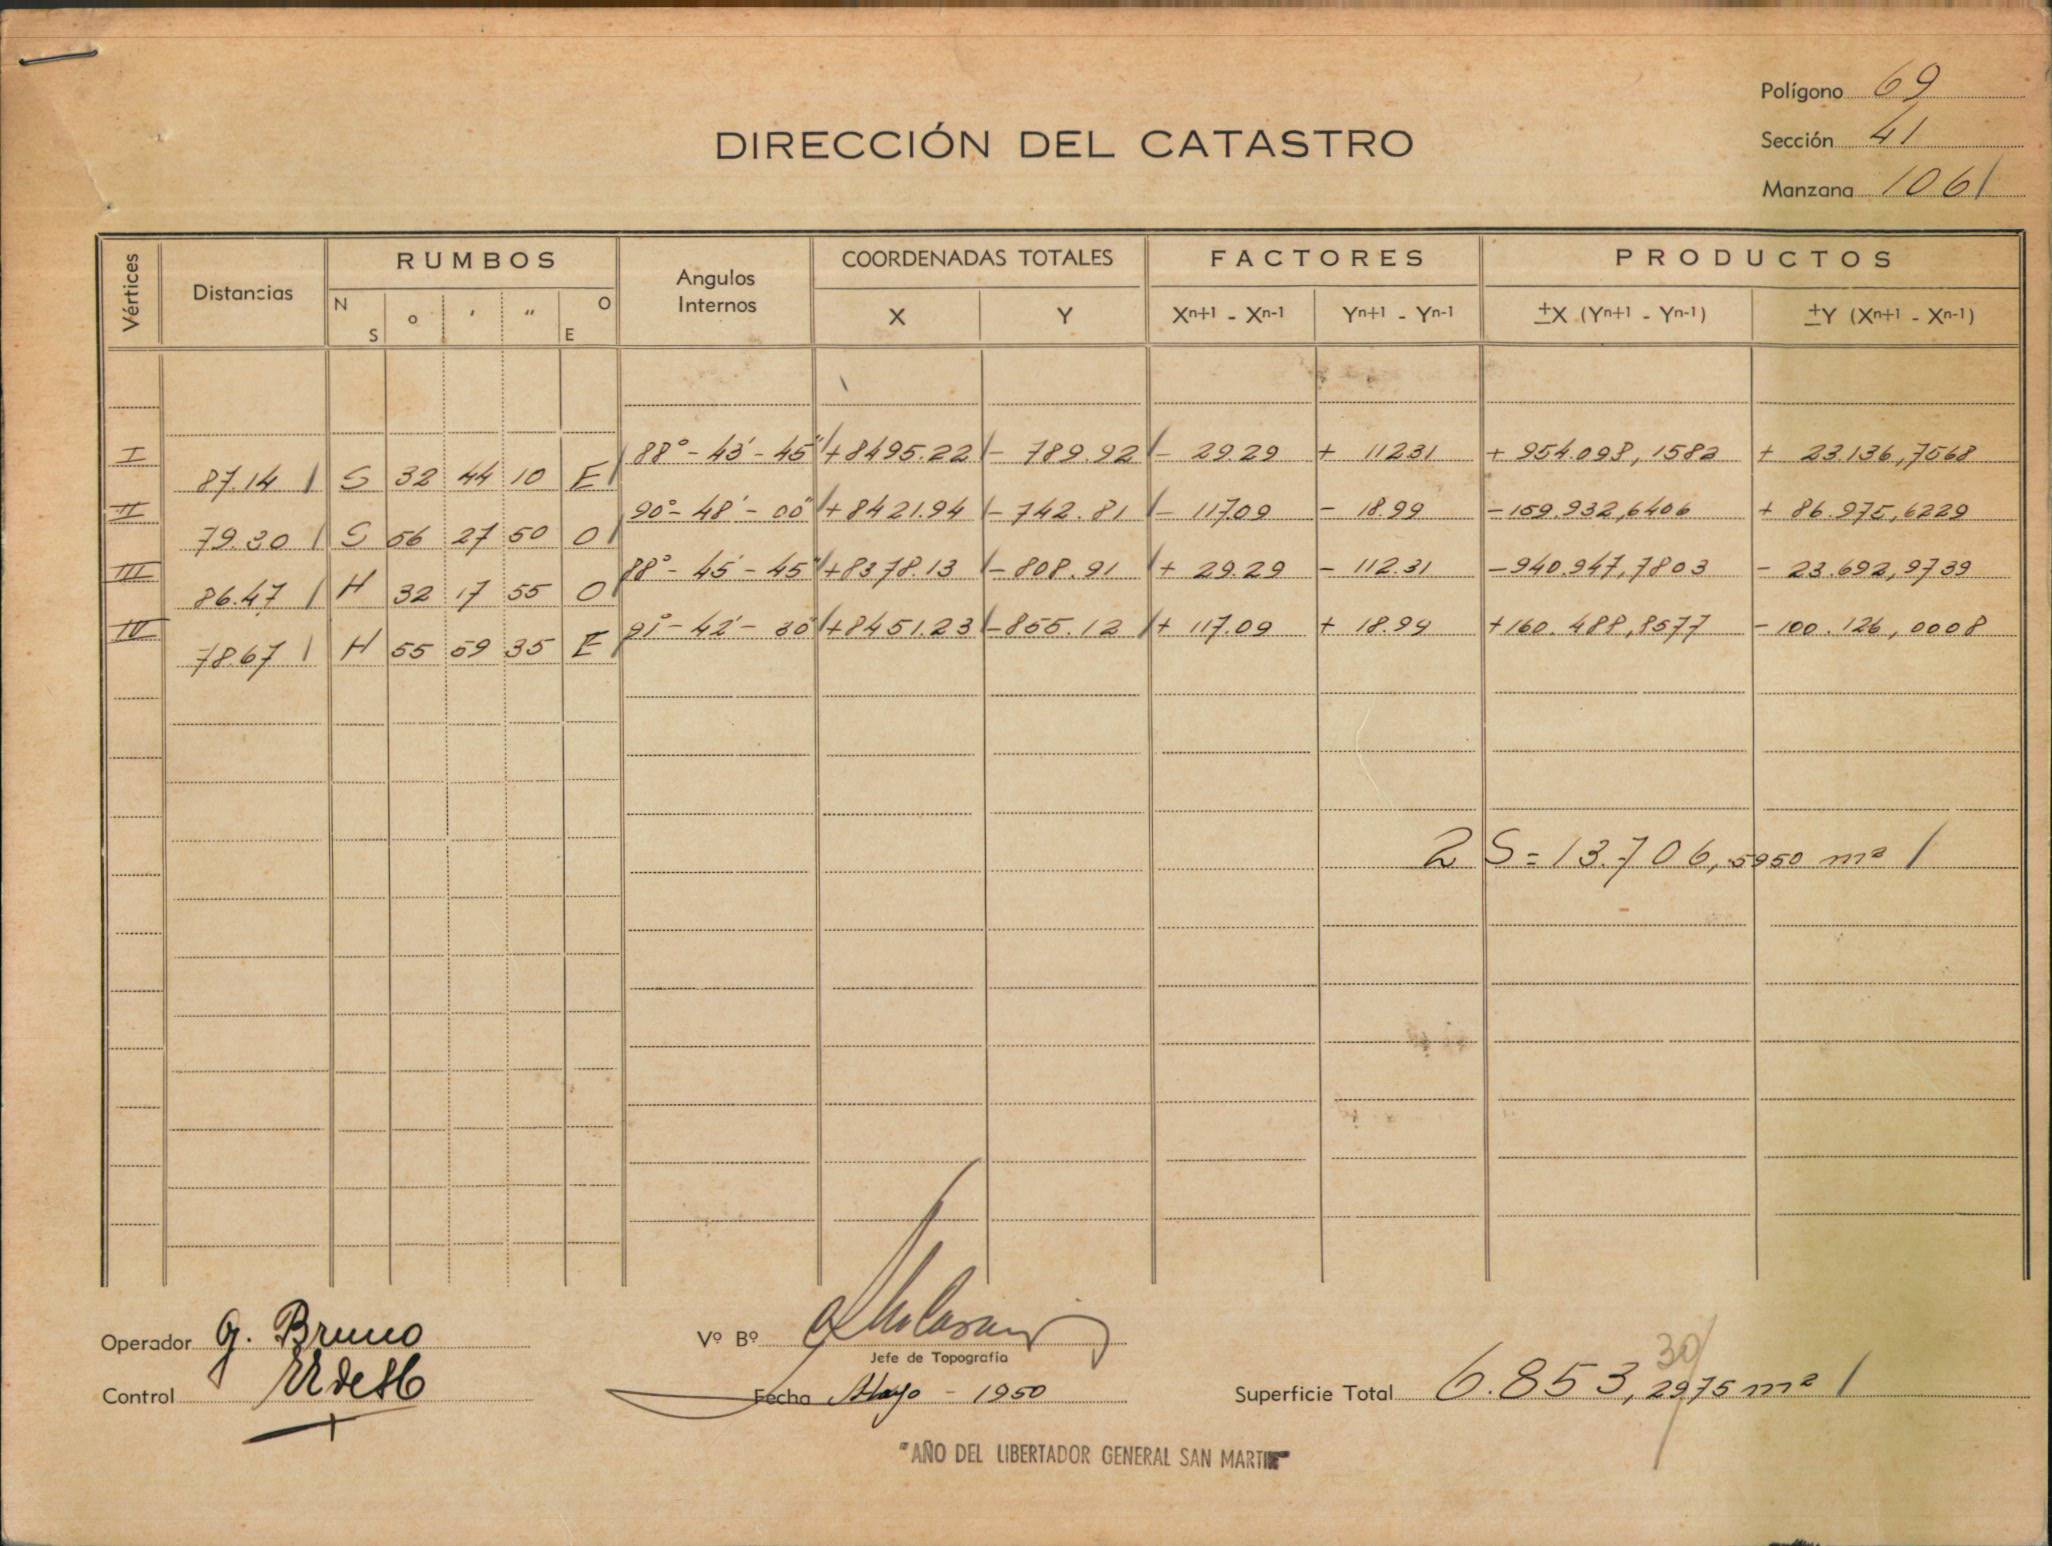 Polígono 69
DIRECCIÓN DEL CATASTRO
Sección 41
Manzana 106 /
Vértices Distancias RUMBOS Angulos Internos COORDENADAS TOTALES FACTORES PRODUCTOS
N S o ' " O E X Y Xn+1 - Xn-1 Yn+1 - Yn-1 ±X (Yn+1 - Yn-1) ±Y (Xn+1 - Xn-1)
I 88° - 43' - 45" / +8495.22 / - 789.92 / - 29.29 + 112.31 + 954.098,1582 + 23.136,7568
87.14 / S 32 44 10 E /
II 90° - 48' - 00" / +8421.94 / - 742.81 / - 117.09 - 18.99 - 159.932,6406 + 86.975,6229
79.30 / S 56 27 50 O /
III 88° - 45' - 45" / +8378.13 / - 808.91 / + 29.29 - 112.31 - 940.947,7803 - 23.692,9739
86.47 / N 32 17 55 O /
IV 91° - 42' - 30" / +8451.23 / - 855.12 / + 117.09 + 18.99 + 160.488,8577 - 100.126,0008
78.67 / N 55 59 35 E /
2 S = 13.706,5950 m² /
Operador G. Bruno
Vº Bº
Jefe de Topografía
30/
Control
Fecha Mayo - 1950
Superficie Total 6.853,2975 m² /
"AÑO DEL LIBERTADOR GENERAL SAN MARTIN"